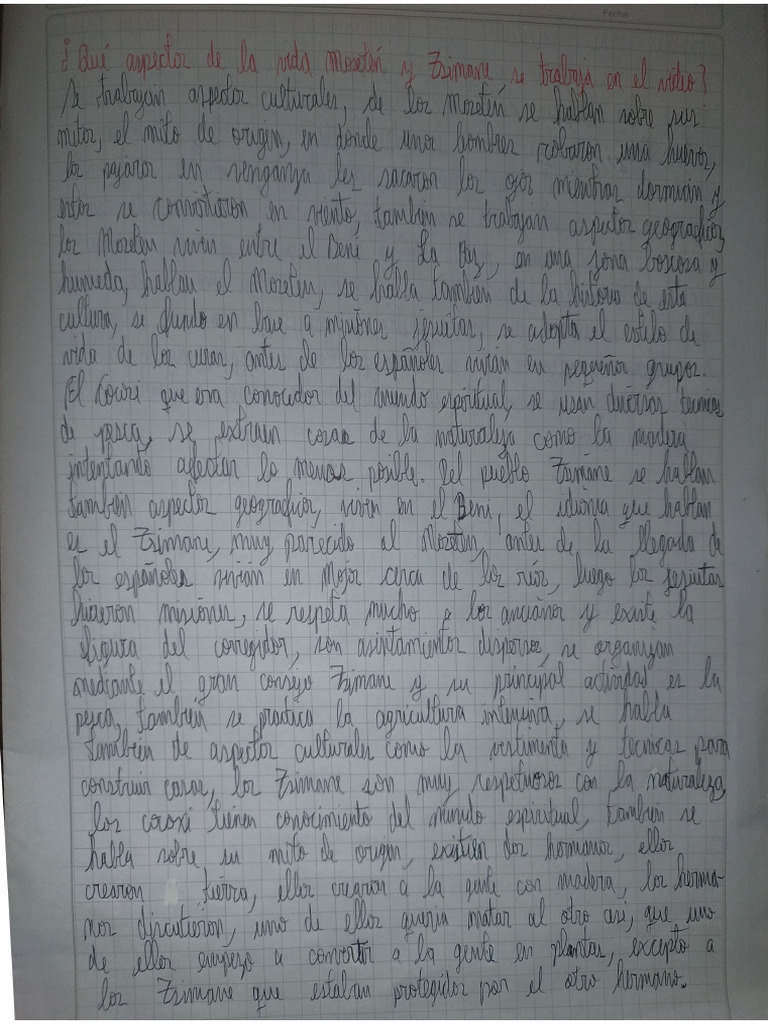 Fecha
¿Qué aspectos de la vida Mosetén y Tsimane se trabaja en el video?
Se trabajan aspectos culturales, de los Mosetén se hablan sobre sus
mitos, el mito de origen, en donde unos hombres robaron una huevos,
los pajaros en venganza les sacaron los ojos mientras dormian y
estos se convirtieron en viento, también se trabajan aspectos geograficos,
los Moseten viven entre el Beni y La Paz, en una zona boscosa y
humeda, hablan el Moseten, se habla también de la historia de esta
cultura, se fundo en base a misiones jesuitas, se adopta el estilo de
vida de los curas, antes de los españoles vivian en pequeños grupos.
El que era conocedor del mundo espiritual, se usan diversas tecnicas
de pesca, se extraen cosas de la naturaleza como la madera
intentando afectar lo menos posible. Del pueblo Tsimane se hablan
tambien aspectos geograficos, viven en el Beni, el idioma que hablan
es el Tsimane, muy parecido al Moseten, antes de la llegada de
los españoles vivian en Mojos cerca de los rios, luego los jesuitas
hicieron misiones, se respeta mucho a los ancianos y existe la
figura del corregidor, son asintamientos dispersos, se organizan
mediante el gran consejo Tsimane y su principal actividad es la
pesca, también se practica la agricultura intensiva, se habla
también de aspectos culturales como la vestimenta y tecnicas para
construir casas, los Tsimane son muy respetuosos con la naturaleza,
los cocoxi tienen conocimiento del mundo espiritual, también se
habla sobre su mito de origen, existien dos hermanos, ellos
crearon tierra, ellos crearon a la gente con madera, los herma-
nos discutieron, uno de ellos queria matar al otro asi, que uno
de ellos empezo a convertir a la gente en plantas, excepto a
los Tsimane que estaban protegidos por el otro hermano.